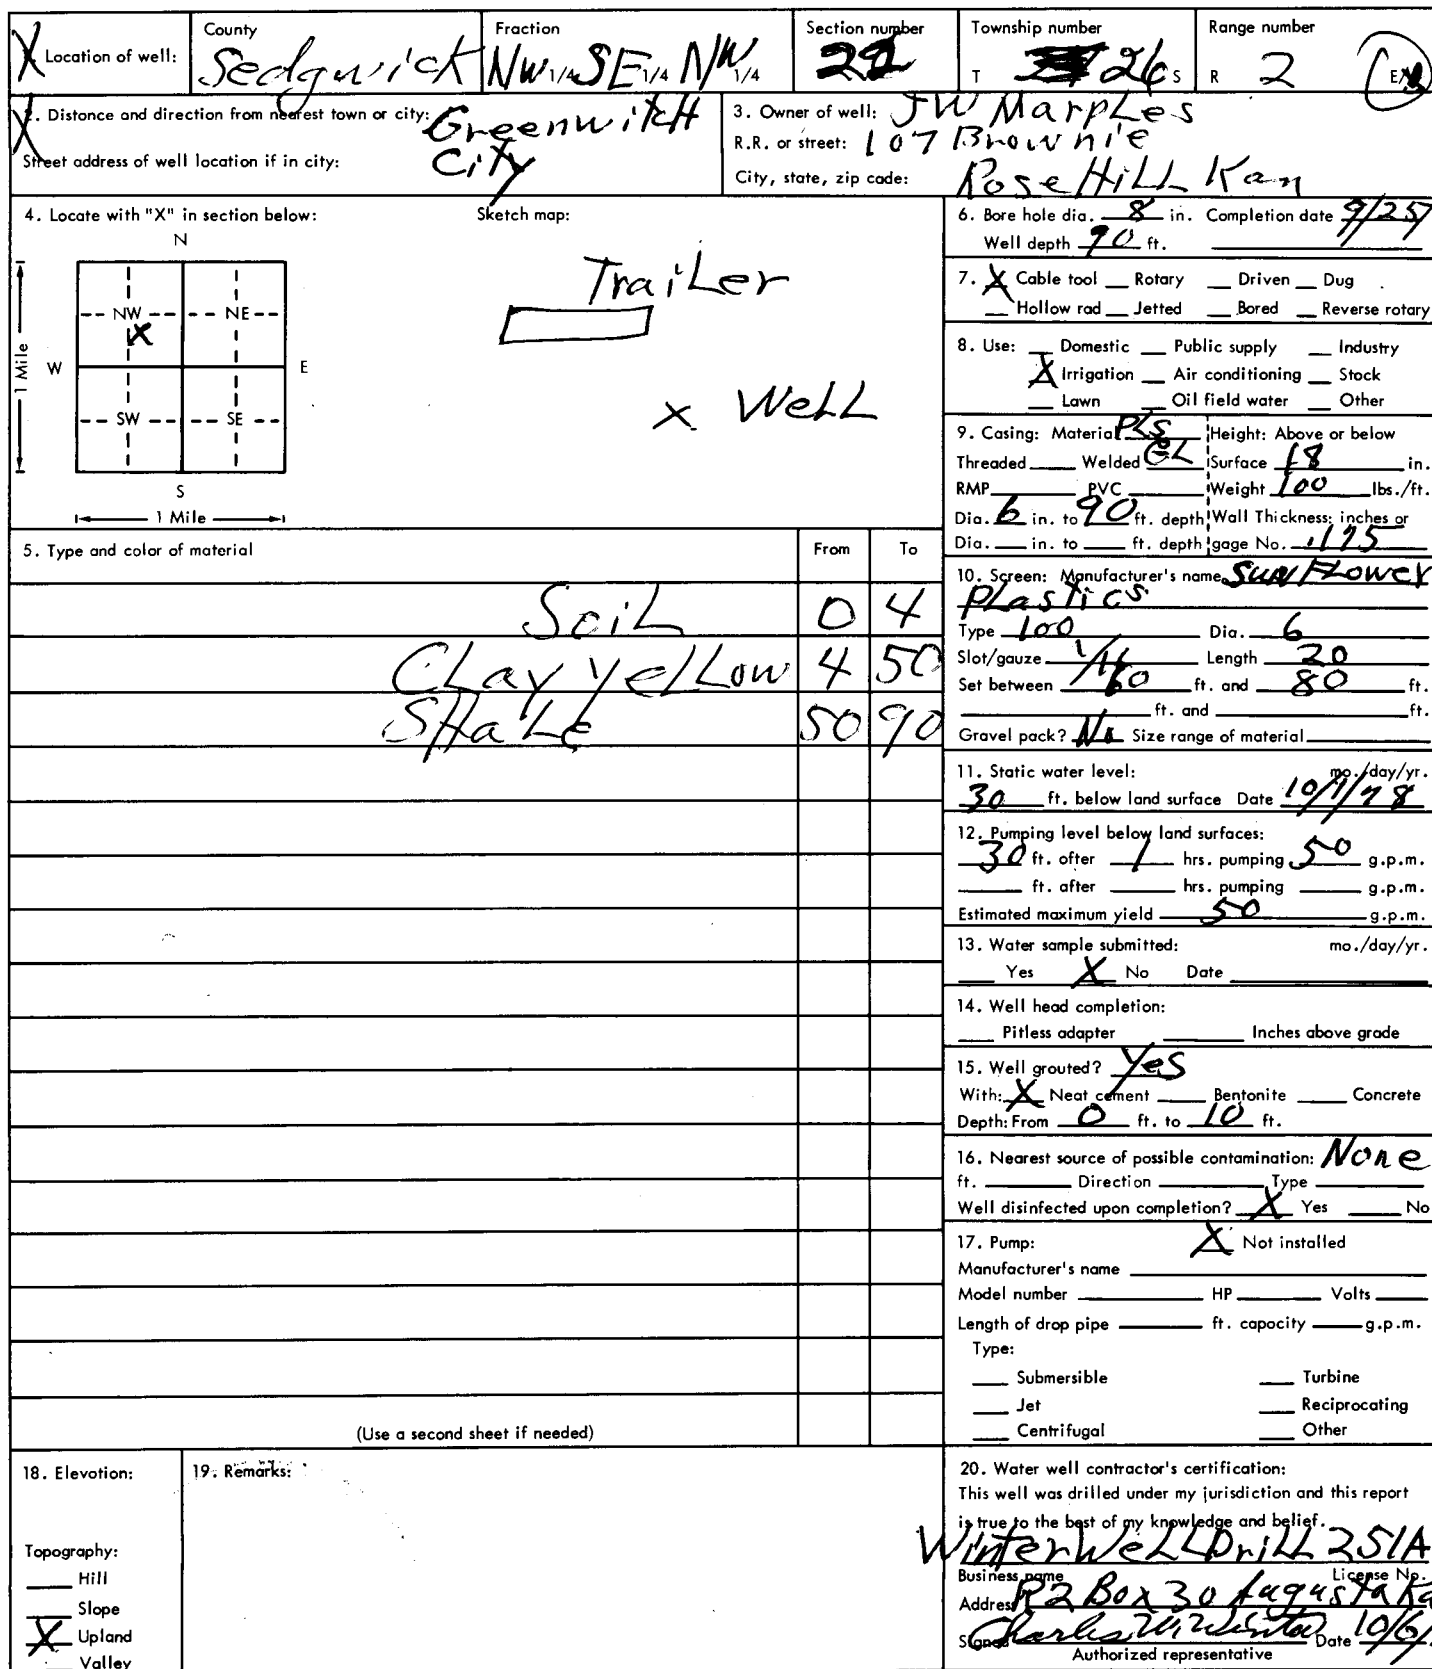 Location of well: County Sedgwick Fraction NW 1/4 SE 1/4 NW 1/4 Section number 22 Township number T 26 S Range number R 2 E
2. Distance and direction from nearest town or city: Greenwitch
Street address of well location if in city: City
3. Owner of well: JW Marples
R.R. or street: 107 Brownie
City, state, zip code: Rose Hill Kan
4. Locate with "X" in section below:
N
NW NE
X
W E
SW SE
S
1 Mile
1 Mile
Sketch map:
Trailer
x Well
5. Type and color of material From To
Soil 0 4
Clay yellow 4 50
Shale 50 90
(Use a second sheet if needed)
6. Bore hole dia. 8 in. Completion date 9/25
Well depth 90 ft.
7. X Cable tool __ Rotary __ Driven __ Dug
__ Hollow rad __ Jetted __ Bored __ Reverse rotary
8. Use: __ Domestic __ Public supply __ Industry
X Irrigation __ Air conditioning __ Stock
__ Lawn __ Oil field water __ Other
9. Casing: Material PLS Height: Above or below
Threaded ___ Welded GL Surface 18 in.
RMP ___ PVC ___ Weight 100 lbs./ft.
Dia. 6 in. to 90 ft. depth Wall Thickness: inches or
Dia. ___ in. to ___ ft. depth gage No. .175
10. Screen: Manufacturer's name Sun Flower
Plastics
Type 100 Dia. 6
Slot/gauze 1/16 Length 20
Set between 60 ft. and 80 ft.
___ ft. and ___ ft.
Gravel pack? No Size range of material
11. Static water level: mo./day/yr.
30 ft. below land surface Date 10/1/78
12. Pumping level below land surfaces:
30 ft. after 1 hrs. pumping 50 g.p.m.
___ ft. after ___ hrs. pumping ___ g.p.m.
Estimated maximum yield 50 g.p.m.
13. Water sample submitted: mo./day/yr.
__ Yes X No Date
14. Well head completion:
__ Pitless adapter ___ Inches above grade
15. Well grouted? Yes
With: X Neat cement ___ Bentonite ___ Concrete
Depth: From 0 ft. to 10 ft.
16. Nearest source of possible contamination: None
ft. ___ Direction ___ Type ___
Well disinfected upon completion? X Yes ___ No
17. Pump: X Not installed
Manufacturer's name
Model number ___ HP ___ Volts ___
Length of drop pipe ___ ft. capacity ___ g.p.m.
Type:
__ Submersible __ Turbine
__ Jet __ Reciprocating
__ Centrifugal __ Other
18. Elevation:
Topography:
__ Hill
__ Slope
X Upland
__ Valley
19. Remarks:
20. Water well contractor's certification:
This well was drilled under my jurisdiction and this report
is true to the best of my knowledge and belief.
Winter Well Drill 251A
Business name License No.
Address R2 Box 30 Augusta Ka
Signed Charles W. Winter Date 10/6/
Authorized representative